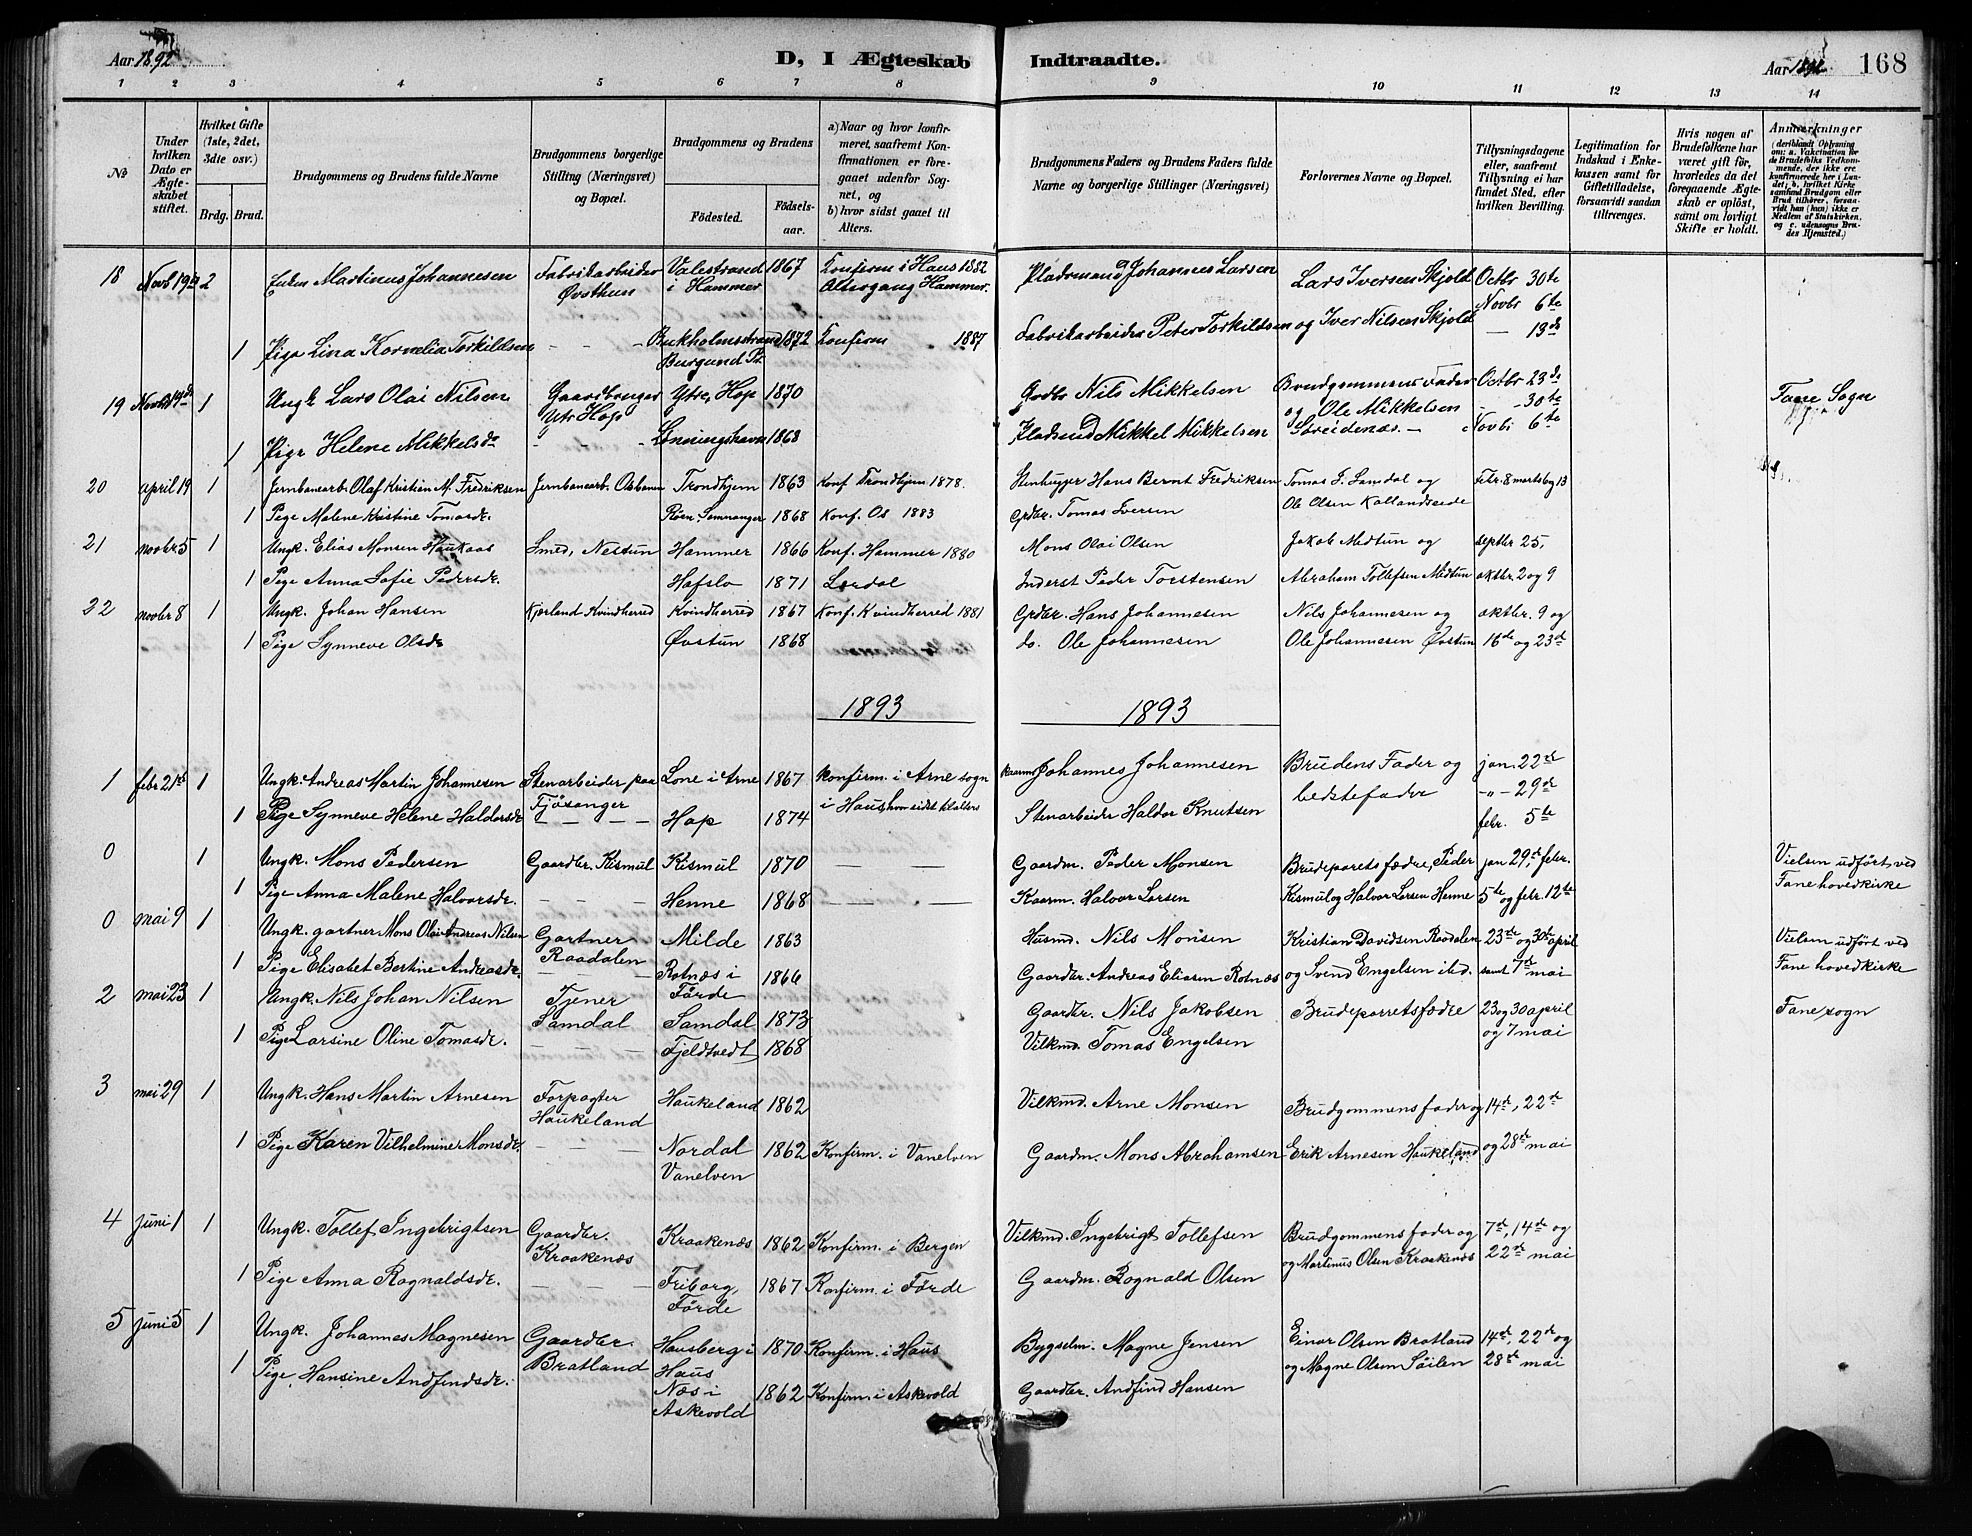 Aar 1892
D, I Ægteskab Indtraadte.
Aar 1892
168
1 2 3 4 5 6 7 8 9 10 11 12 13 14
No
Under hvilken Dato er Ægteskabet stiftet.
Hvilket Gifte (1ste, 2det, 3die osv.)
Brdg. Brud.
Brudgommens og Brudens fulde Navne
Brudgommens borgerlige Stilling (Næringsvei) og Bopæl.
Brudgommens og Brudens
Födested.
Födselsaar.
a) Naar og hvor konfirmeret, saafremt Konfirmationen er foregaaet udenfor Sognet, og
b) hvor sidst gaaet til Alters.
Brudgommens Faders og Brudens Faders fulde Navne og borgerlige Stillinger (Næringsvei)
Forlovernes Navne og Bopæl.
Tillysningsdagene eller, saafremt Tillysning ei har fundet Sted, efter hvilken Bevilling.
Legitimation for Indskud i Enkekassen samt for Giftetilladelse, forsaavidt saadan tiltrænges.
Hvis nogen af Brudefolkene har været gift för, hvorledes da det foregaaende Ægteskab er oplöst, samt om lovligt Skifte er holdt.
Anmærkninger (deriblandt Oplysning om: a. Vakcination for de Brudefolks Vedkommende, der ikke ere konfirmerede her i Landet; b. hvilket Kirkesamfund Brudgom eller Brud tilhörer, forsaavidt han (hun) ikke er Medlem af Statskirken, og c. udensogns Brudes Hjemsted.)
18 Novb 19de 2 Enkm Martinus Johannesen Fabrikarbeider Øvsthun Valestrand i Hammer 1867 Konfirm i Haus 1882 Altergang Hammer. Pladsmand Johannes Larsen Lars Iversen Skjold Octbr 30te
Novbr 6te
1 Pige Lina Kornelia Torkildsen - - - 1872 Konfirm 1887 Fabrikarbeider Peter Torkildsen og Iver Nilsen Skjold — 13de
19 1 Ungk Lars Olai Nilsen Gaardbruger Ytr Hop Ytre Hop 1870 Grdbr Nils Mikkelsen Brudgommens Fader Octbr 23de Fane Sogn
og Ole Mikkelsen - 30te
1 Pige Helene Mikkelsdr - 1868 Pladsmd Mikkel Mikkelsen Novbr 6te
20 april 19 1 Jernbanearb. Olaf Kristian M. Fredriksen Jernbanearb. Trondhjem 1863 Konf Trondhjem 1878. Stenhugger Hans Bernt Fredriksen Tomas J. Samdal og Febr. 8 marts 6 og 13
1 Pige Malene Kristine Tomasdr. Röen, Samnanger 1868 Konf. Os 1883 Grdbr. Tomas Iversen Ole Olsen Kallandseide
21 novbr 5 1 Ungk. Elias Monsen Haukaas Smed, Nestun Hammer 1866 Konf. Hammer 1880 Mons Olai Olsen Jakob Midtun og septbr 25,
1 Pige Anna Sofie Pedersdr. Hafslo 1871 Lerdal Inderst Peder Torstensen Abraham Tollefsen Midtun oktbr. 2 og 9
22 novbr 8 1 Ungk. Johan Hansen Kjerland Kvindherred Kvindherred 1867 Konf. Kvindherred 1881 Grdbr. Hans Johannesen Nils Johannesen og oktbr. 9 og
1 Pige Synneve Olsdr Øvstun 1868 do. Ole Johannesen Ole Johannesen Øvstun 16de og 23de
1893 1893
1 febr 21de 1 Ungk. Andreas Martin Johannesen Stenarbeider paa Fjösanger Lone i Arne 1867 Konfirm. i Arne sogn i Haus, hvor sidst til alters Johannes Johannesen Brudens Fader og bedstefader jan. 22de
-"- 29de
1 Pige Synneve Helene Haldorsdr — — — — Hop 1874 Stenarbeider Haldor Knutsen febr. 5te
0 1 Ungk. Mons Pedersen Gaardbr. Kismul Kismul 1870 — — — Gaardm. Peder Monsen Brudeparets fædre, Peder jan 29,de febr. Vielsen udført ved
1 Pige Anna Malene Halvorsdr. - - - Henne 1868 — — — Kaarm. Halvor Larsen Kismul og Halvor Larsen Henne 5te og febr. 12te Fane hovedkirke
0 mai 9 1 Ungk. gartner Mons Olai Andreas Nilsen Gartner Raadalen Milde 1863 Husmd. Nils Monsen Kristian Davidsen Raadalen 23de og 30te april Vielsen udført ved
1 Pige Elisabet Bertine Andreasdr. - - - Rotnæs i Förde 1866 Gaardbr. Andreas Eliasen Rotnæs og Svend Engelsen ibd. samt 7de mai Fane hovedkirke
2 mai 23 1 Ungk. Nils Johan Nilsen Tjener Samdal Samdal 1873 Gaardbr. Nils Jakobsen Brudeparretsfædre 23 og 30 april Fane sogn
1 Pige Larsine Oline Tomasdr. - - - Fjeldtvedt 1868 Vilkmd. Tomas Engelsen og 7 mai
3 mai 29 1 Ungk. Hans Martin Arnesen Forpagter Haukeland Haukeland 1862 Vilkmd. Arne Monsen Brudgommens fader og 14de, 22de
1 Pige Karen Vilhelmine Monsdr. - - - Nordal Vanelven 1862 Konfirm. i Vanelven Gaardm. Mons Abrahamsen Erik Arnesen Haukeland og 28de mai
4 juni 1 1 Ungk. Tollef Ingebrigtsen Gaardbr. Kraakenæs Kraakenæs 1862 Konfirm. i Bergen Vilkmd. Ingebrigt Tollefsen Brudgommens fader og 7de, 14de og
1 Pige Anna Rognaldsdr. — — — Friborg, Förde 1867 Konfirm. i Førde Gaardm. Rognald Olsen og Martinus Olsen Kraakenæs 22de mai
5 juni 5 1 Ungk. Johannes Magnesen Gaardbr. Bratland Hausberg i Haus 1870 Konfirm. i Haus Bygselm. Magne Jensen Einar Olsen Bratland 14de, 22de og
1 Pige Hansine Andfindsdr. Næs i Askevold 1862 Konfirm. i Askevold Gaardbr. Andfind Hansen og Magne Olsen Söilen 28de mai